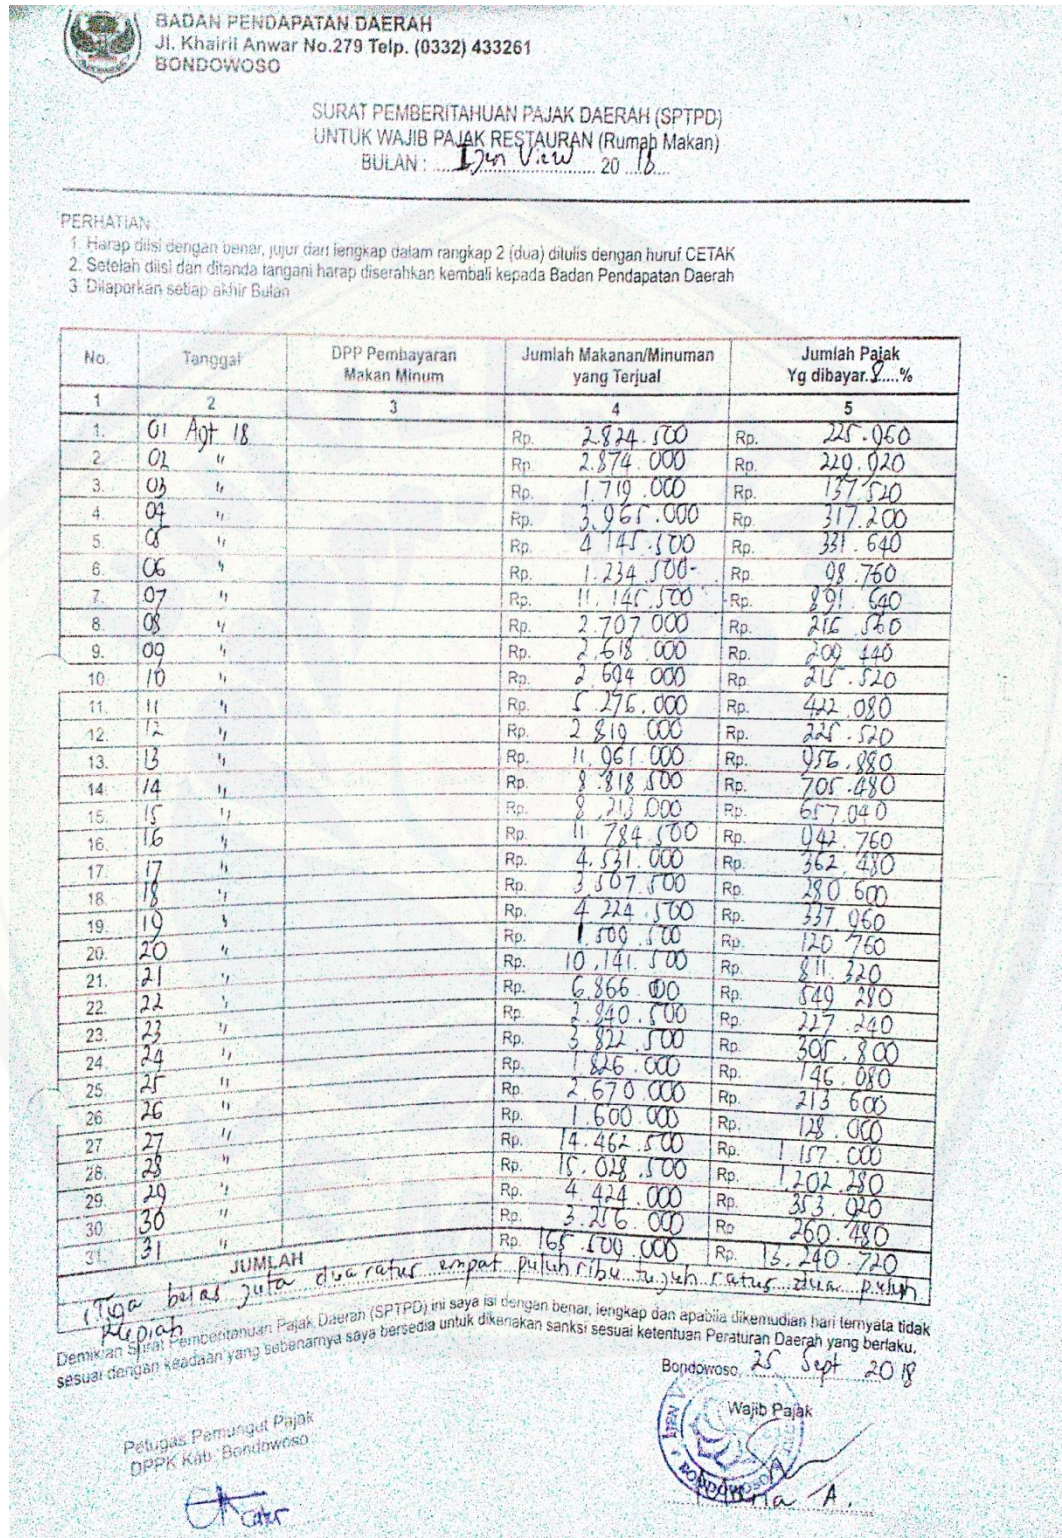 BADAN PENDAPATAN DAERAH
Jl. Khairil Anwar No.279 Telp. (0332) 433261
BONDOWOSO
SURAT PEMBERITAHUAN PAJAK DAERAH (SPTPD)
UNTUK WAJIB PAJAK RESTAURAN (Rumah Makan)
BULAN : Ijen View 20 18
PERHATIAN :
1. Harap diisi dengan benar, jujur dan lengkap dalam rangkap 2 (dua) ditulis dengan huruf CETAK
2. Setelah diisi dan ditanda tangani harap diserahkan kembali kepada Badan Pendapatan Daerah
3. Dilaporkan setiap akhir Bulan
No. Tanggal DPP Pembayaran Makan Minum Jumlah Makanan/Minuman yang Terjual Jumlah Pajak Yg dibayar.8....%
1 2 3 4 5
1. 01 Agt 18 Rp. 2.824.500 Rp. 225.960
2. 02 " Rp. 2.874.000 Rp. 229.920
3. 03 " Rp. 1.719.000 Rp. 137.520
4. 04 " Rp. 3.965.000 Rp. 317.200
5. 05 " Rp. 4.145.500 Rp. 331.640
6. 06 " Rp. 1.234.500- Rp. 98.760
7. 07 " Rp. 11.145.500 Rp. 891.640
8. 08 " Rp. 2.707.000 Rp. 216.560
9. 09 " Rp. 2.618.000 Rp. 209.440
10. 10 " Rp. 2.694.000 Rp. 215.520
11. 11 " Rp. 5.276.000 Rp. 422.080
12. 12 " Rp. 2.819.000 Rp. 225.520
13. 13 " Rp. 11.961.000 Rp. 956.880
14. 14 " Rp. 8.818.500 Rp. 705.480
15. 15 " Rp. 8.213.000 Rp. 657.040
16. 16 " Rp. 11.784.500 Rp. 942.760
17. 17 " Rp. 4.531.000 Rp. 362.480
18. 18 " Rp. 3.507.500 Rp. 280.600
19. 19 " Rp. 4.224.500 Rp. 337.960
20. 20 " Rp. 1.509.500 Rp. 120.760
21. 21 " Rp. 10.141.500 Rp. 811.320
22. 22 " Rp. 6.866.000 Rp. 549.280
23. 23 " Rp. 2.840.500 Rp. 227.240
24. 24 " Rp. 3.822.500 Rp. 305.800
25. 25 " Rp. 1.826.000 Rp. 146.080
26. 26 " Rp. 2.670.000 Rp. 213.600
27. 27 " Rp. 1.600.000 Rp. 128.000
28. 28 " Rp. 14.462.500 Rp. 1.157.000
29. 29 " Rp. 15.028.500 Rp. 1.202.280
30. 30 " Rp. 4.424.000 Rp. 353.920
31. 31 " Rp. 3.256.000 Rp. 260.480
JUMLAH Rp. 165.509.000 Rp. 13.240.720
(Tiga belas juta dua ratus empat puluh ribu tujuh ratus dua puluh
Rupiah
Demikian Surat Pemberitahuan Pajak Daerah (SPTPD) ini saya isi dengan benar, lengkap dan apabila dikemudian hari ternyata tidak
sesuai dengan keadaan yang sebenarnya saya bersedia untuk dikenakan sanksi sesuai ketentuan Peraturan Daerah yang berlaku.
Bondowoso, 25 Sept 2018
Wajib Pajak
Petugas Pemungut Pajak
DPPK Kab. Bondowoso
BONDOWOSO
A.